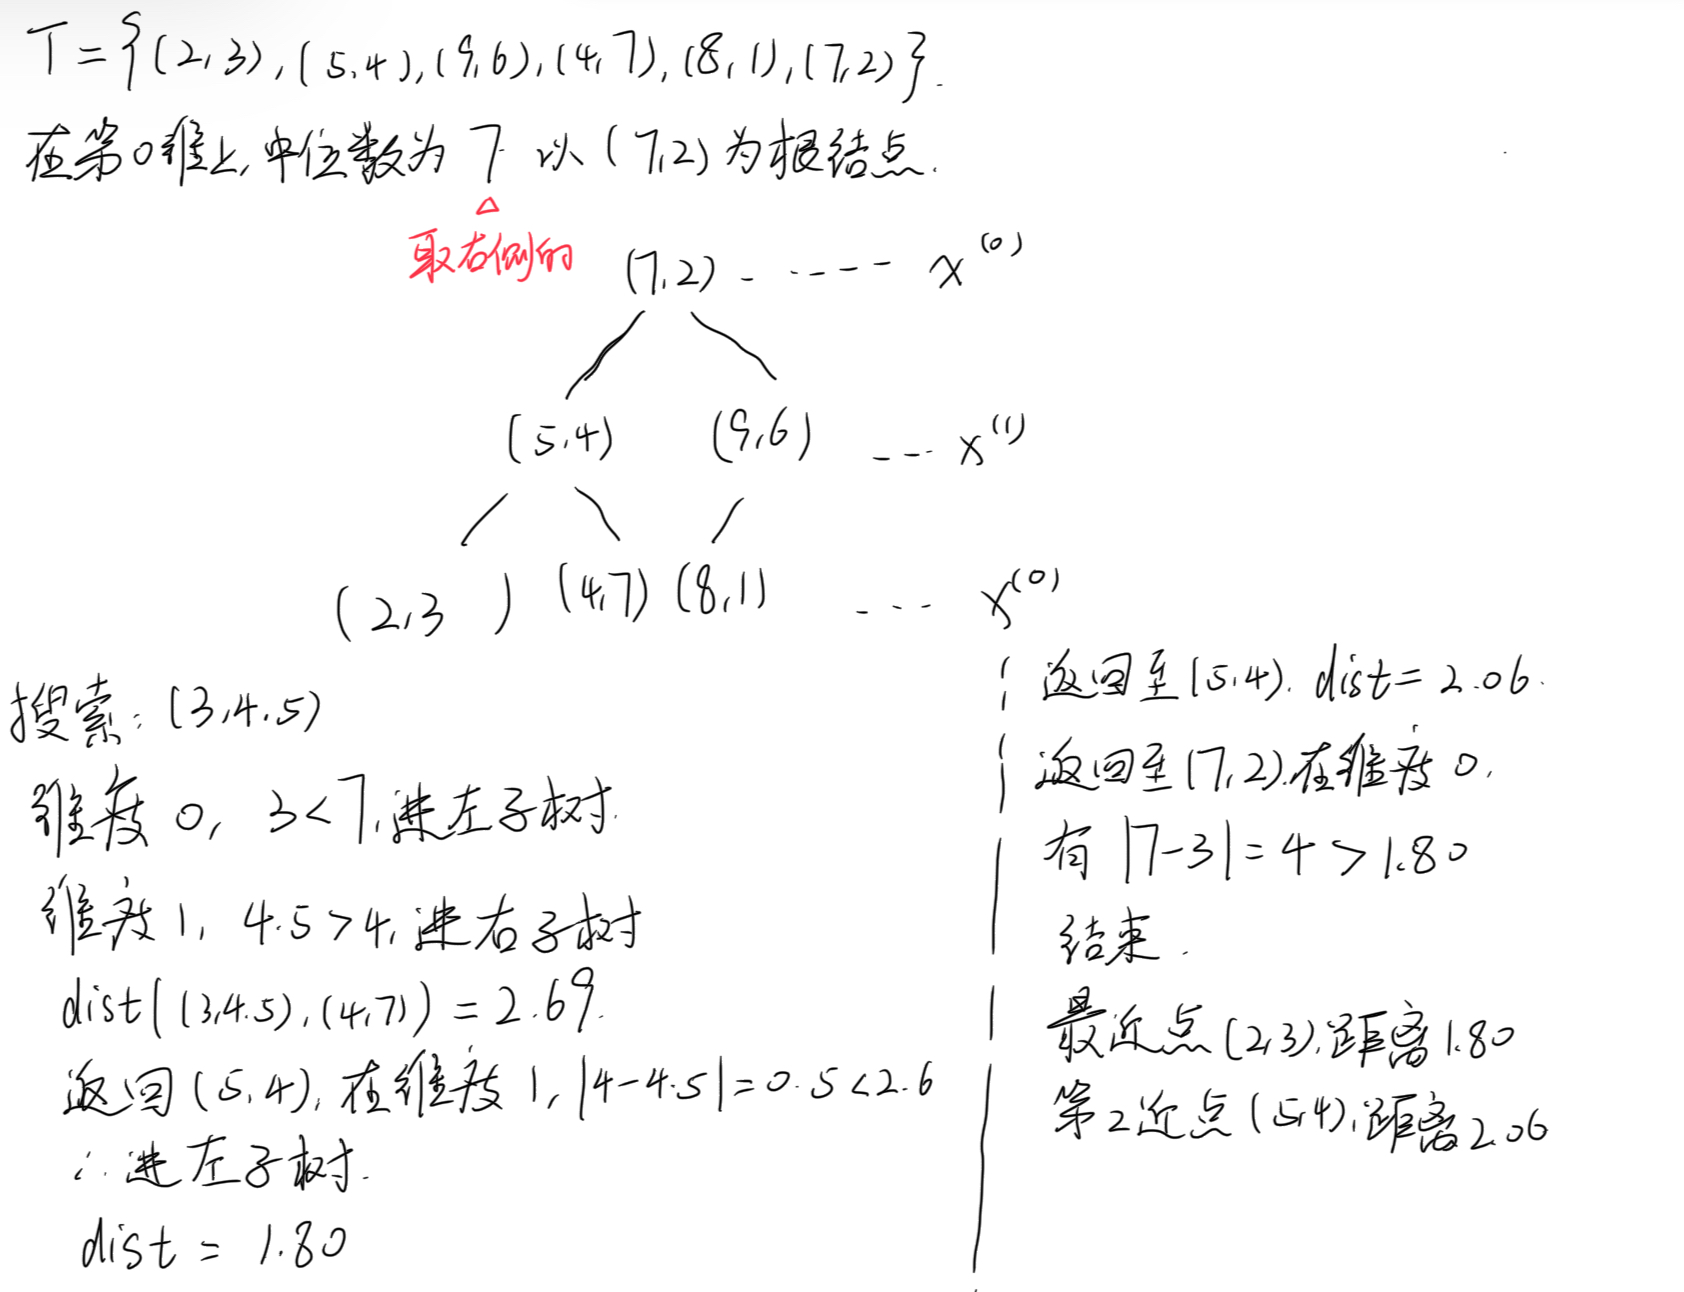 T={(2,3),(5,4),(9,6),(4,7),(8,1),(7,2)}.
在第0维上,中位数为 7 以(7,2)为根结点.
△
取右侧的
(7,2) - ----- x^(0)
(5,4) (9,6) --- x^(1)
(2,3 ) (4,7) (8,1) --- x^(0)
搜索:(3,4.5)
维度0, 3<7,进左子树.
维度1, 4.5>4,进右子树
dist((3,4.5),(4,7))=2.69.
返回(5,4),在维度1,|4-4.5|=0.5<2.6
∴进左子树.
dist = 1.80
返回至(5,4). dist=2.06.
返回至(7,2).在维度0,
有|7-3|=4>1.80
结束.
最近点(2,3),距离1.80
第2近点(5,4),距离2.06